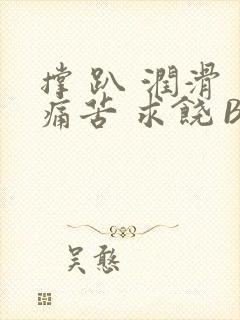 撑 趴 潤滑
痛苦 求饒 B
吴憨